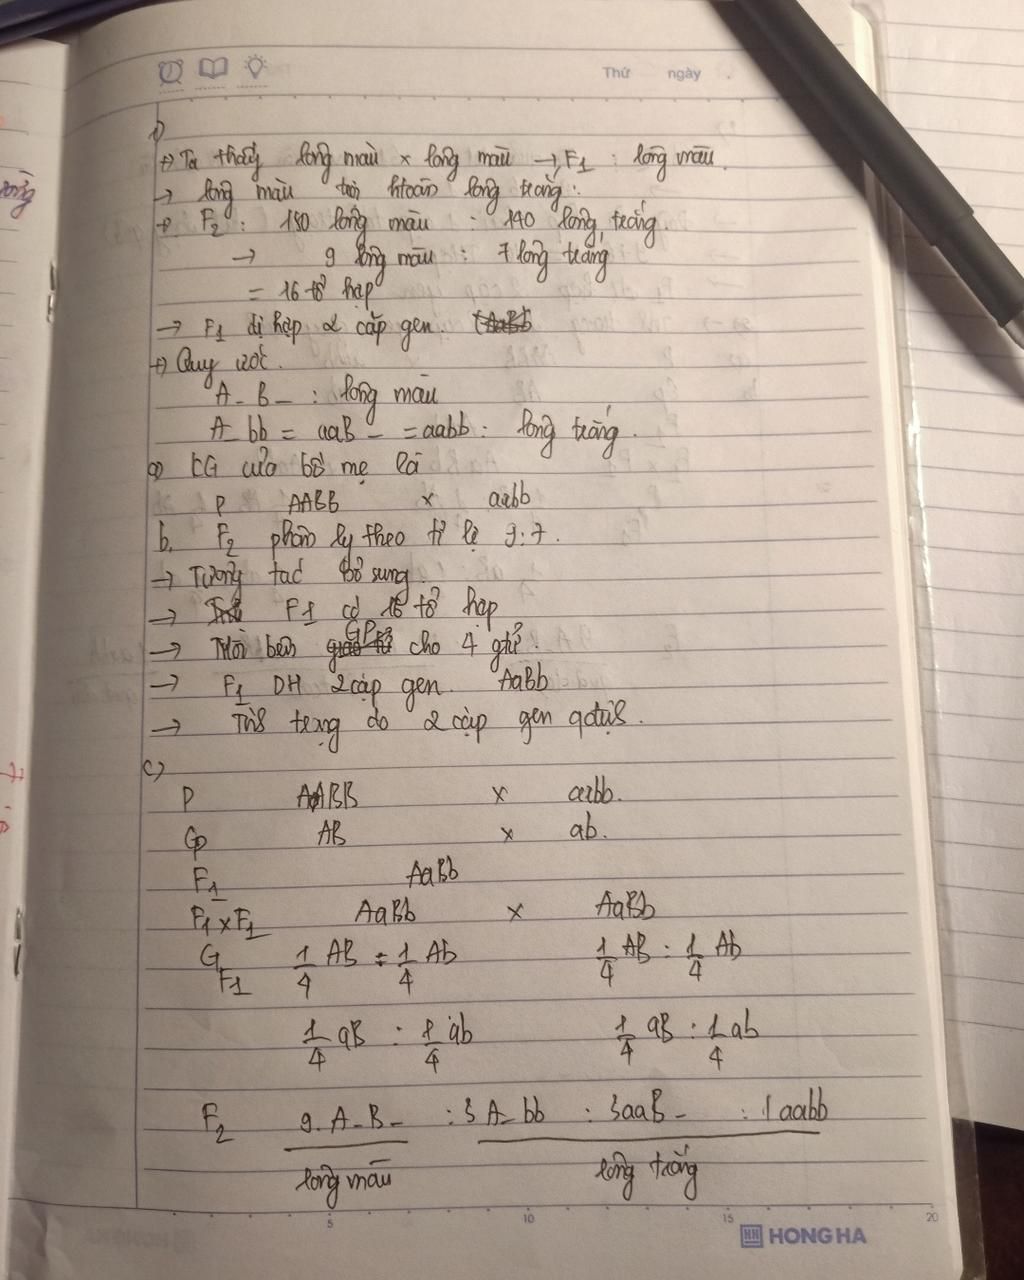 Thứ ngày
+) Ta thấy lông màu x lông màu → F1 : lông màu
→ lông màu trội htoàn lông trắng.
+ F2 : 180 lông màu : 140 lông trắng.
→ 9 lông màu : 7 lông trắng
= 16 tổ hợp
→ F1 dị hợp 2 cặp gen. (AaBb
+) Quy ước.
A-B- : lông màu
A-bb = aaB- = aabb : lông trắng.
a) KG của bố mẹ là
P AABB x aabb
b. F2 phân ly theo tỉ lệ 9:7.
→ Tương tác bổ sung.
→ F1 có 16 tổ hợp
→ Mỗi bên GP cho 4 gtử.
→ F1 DH 2 cặp gen. AaBb
→ Tính trạng do 2 cặp gen qđịnh.
c)
P AABB x aabb.
Gp AB x ab.
F1 AaBb
F1 x F1 AaBb x AaBb
G F1 1/4 AB : 1/4 Ab 1/4 AB : 1/4 Ab
1/4 aB : 1/4 ab 1/4 aB : 1/4 ab
F2 9 A-B- : 3 A-bb : 3aaB- : 1 aabb
lông màu lông trắng
5 10 15 20
HH HONG HA